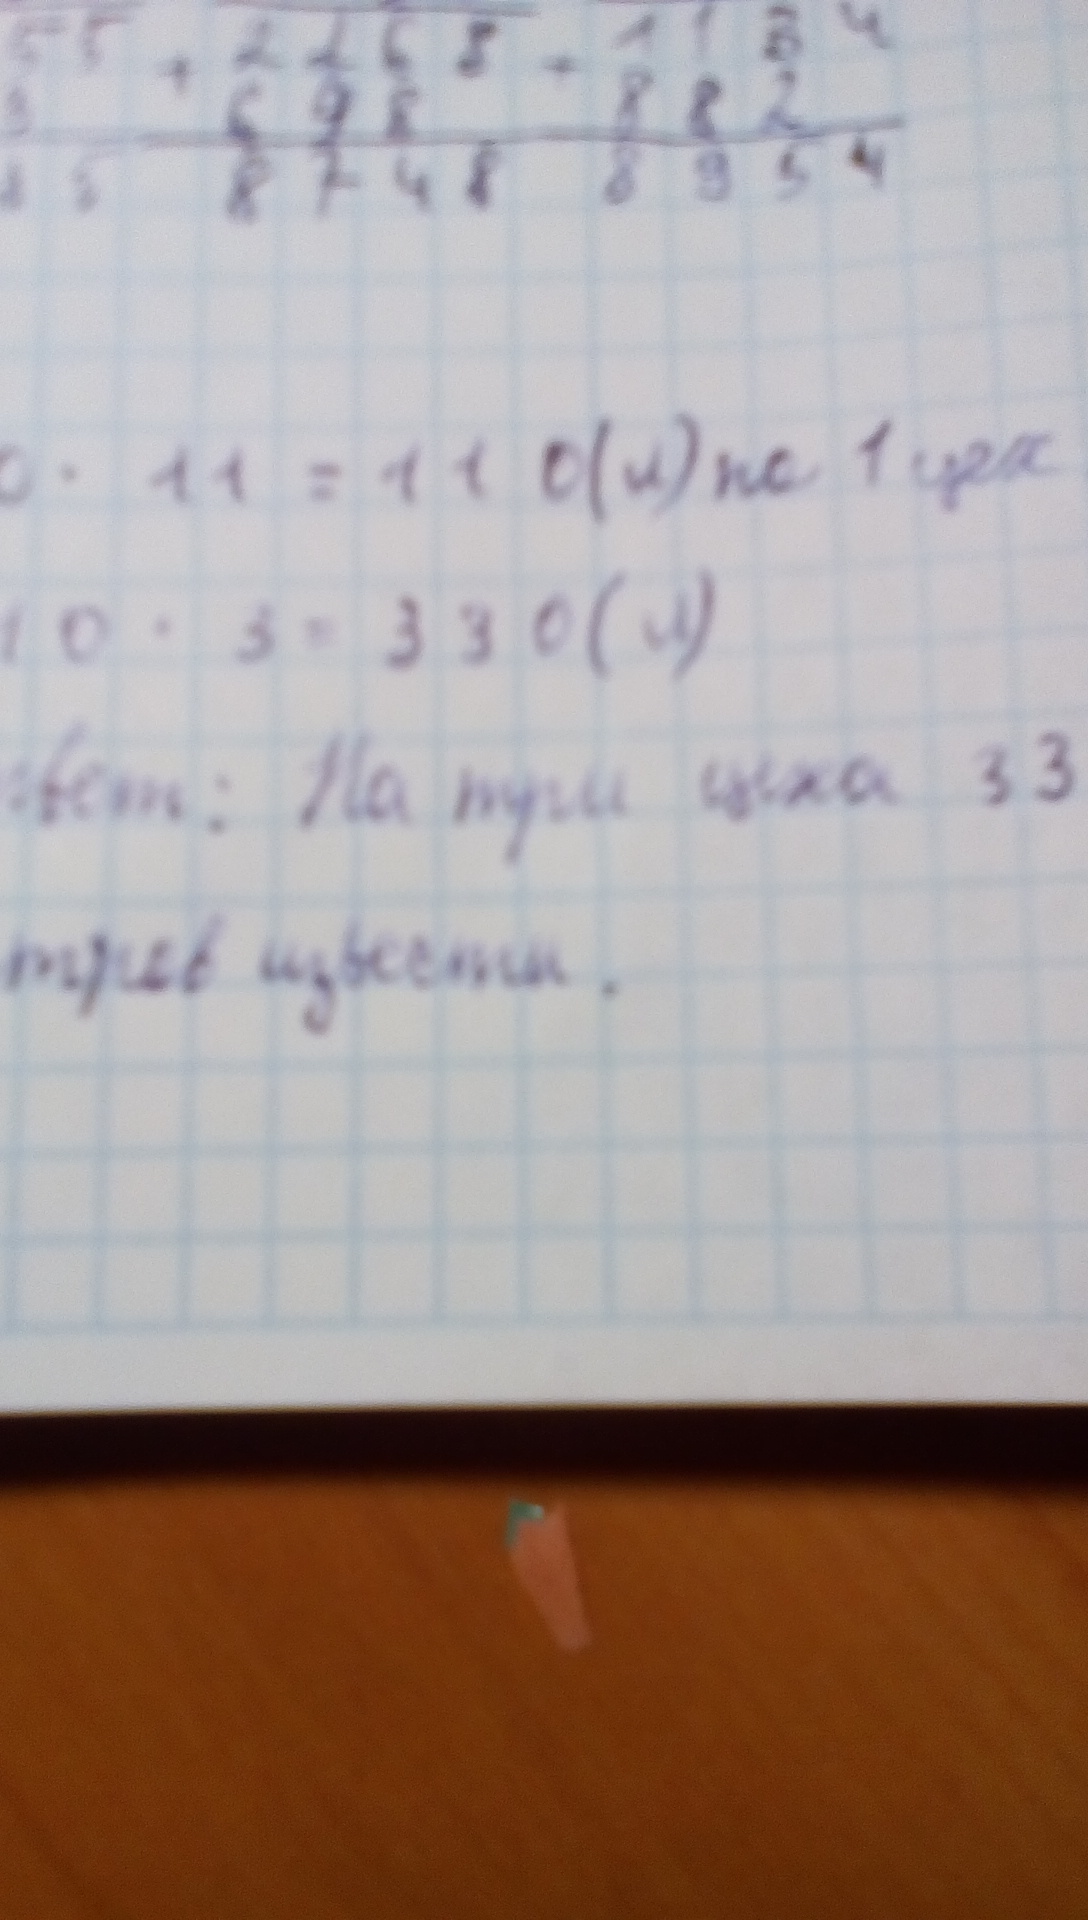 5 5 + 2 2 6 8 + 1 1 3 4
3 6 9 8 8 8 2
8 5 8 7 4 8 8 9 5 4
0 · 11 = 110(л) на 1 цех
10 · 3 = 330(л)
твет: На три цеха 33
извести.